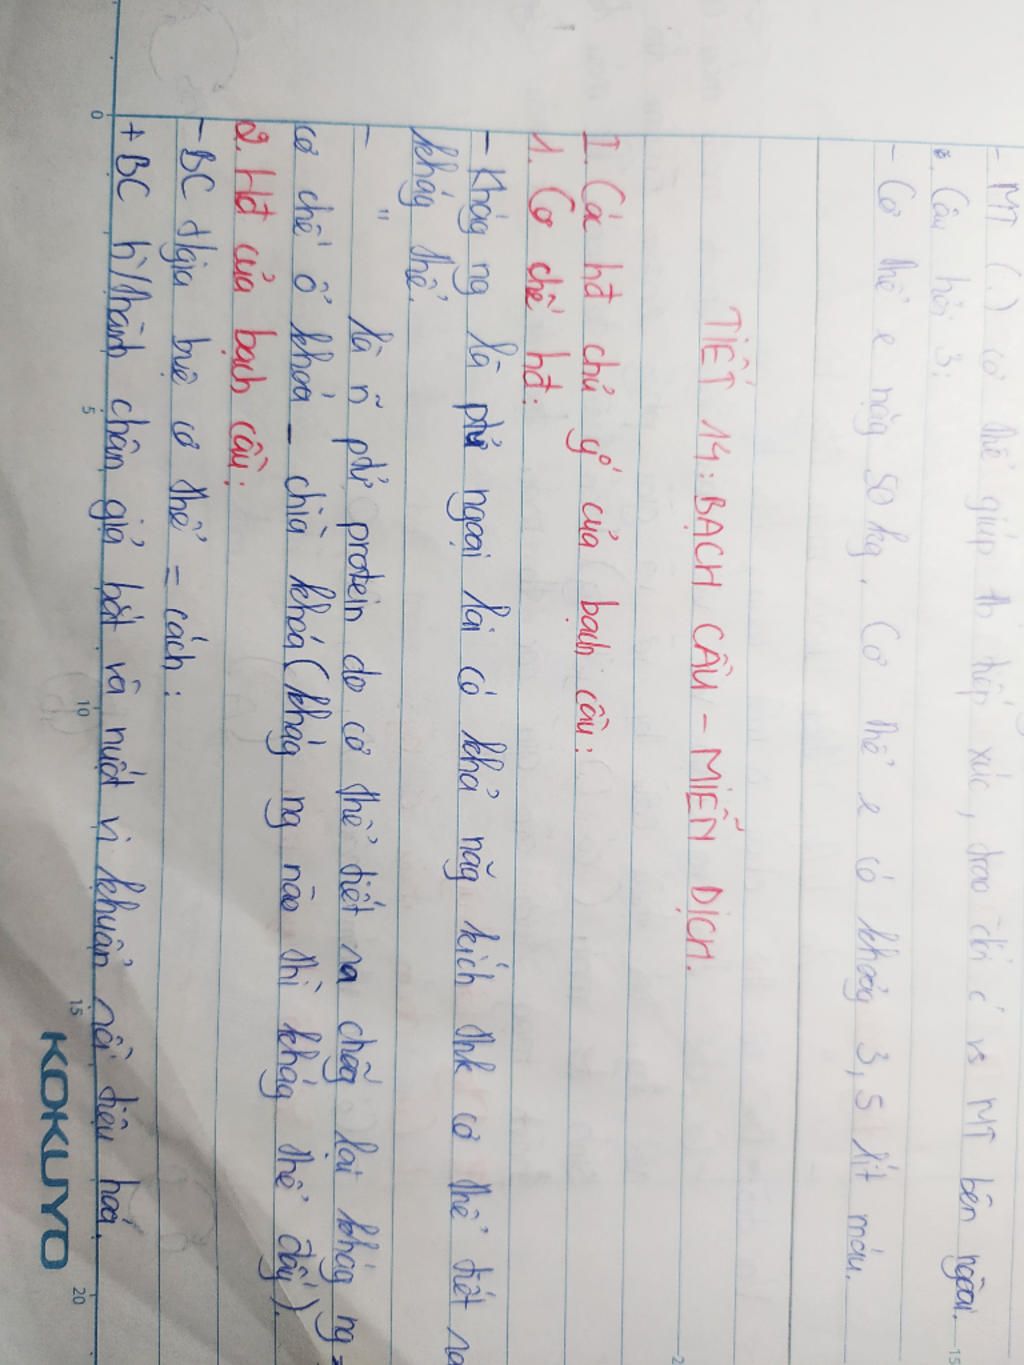 - MT (.) cơ thể giúp tb tiếp xúc, trao đổi c vs MT bên ngoài.
Câu hỏi 3:
- Cơ thể e nặg 50 kg. Cơ thể e có khoảg 3,5 lít máu.
TIẾT 14: BẠCH CẦU - MIỄN DỊCH.
I. Các hđ chủ yố của bạch cầu:
1. Cơ chế hđ:
- Khág ng là ptử ngoại lai có khả năg kích thk cơ thể tiết ra
khág thể.
- " là ~n ptử protein do cơ thể tiết ra chốg lại khág ng =
cơ chế ổ khoá - chìa khoá (khág ng nào thì khág thể đấy).
2. Hđ của bạch cầu:
- BC tham gia bvệ cơ thể = cách:
+ BC h'/thành chân giả bắt và nuốt vi khuẩn rồi tiêu hoá.
0
5
10
15
20
KOKUYO